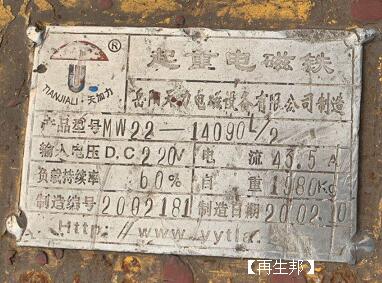 起重电磁铁
TIANJIALI 天加力 ®
岳阳天力电磁设备有限公司制造
产品型号 MW22-14090L/2
输入电压 D.C 220V 电流 43.5 A
负载持续率 60% 自重 1980Kg
制造编号 2002181 制造日期 20.02.10
Http://www.yytla.
【再生邦】